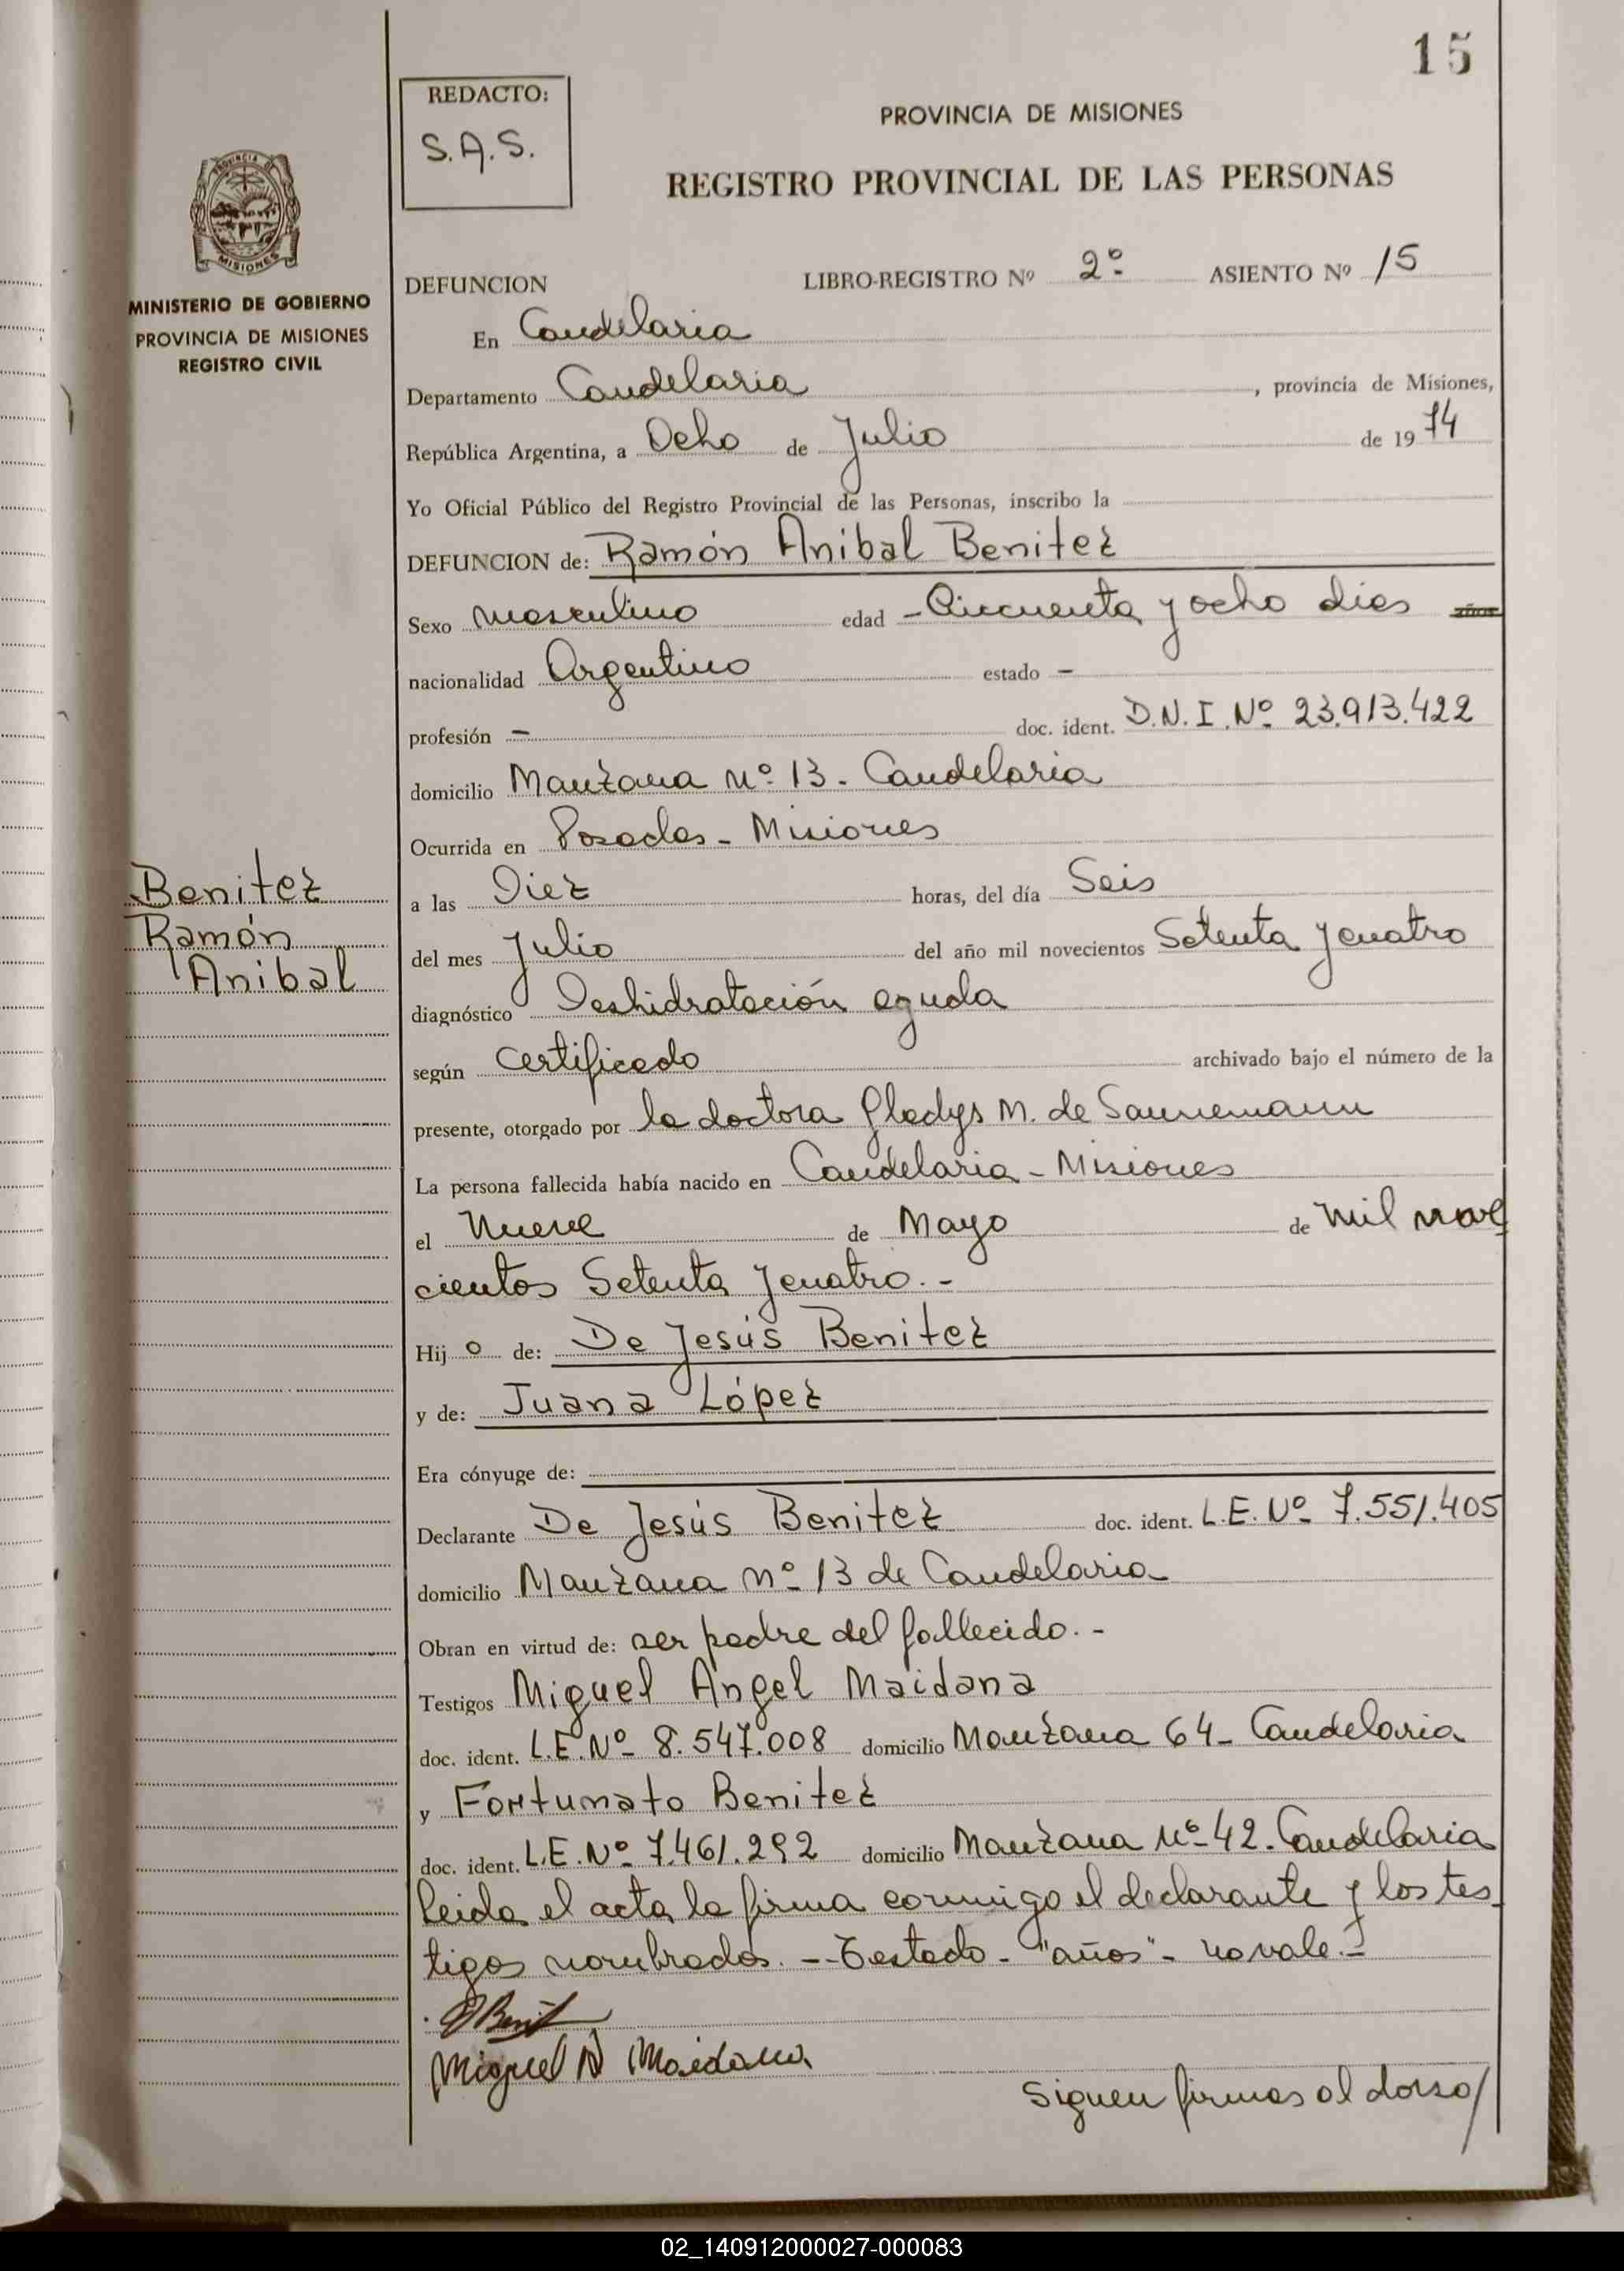 15
REDACTO:
S.A.S.
PROVINCIA DE MISIONES
REGISTRO PROVINCIAL DE LAS PERSONAS
PROVINCIA DE
MISIONES
MINISTERIO DE GOBIERNO
PROVINCIA DE MISIONES
REGISTRO CIVIL
DEFUNCION LIBRO-REGISTRO Nº 2º ASIENTO Nº 15
En Candelaria
Departamento Candelaria, provincia de Misiones,
República Argentina, a Ocho de Julio de 1974
Yo Oficial Público del Registro Provincial de las Personas, inscribo la
DEFUNCION de: Ramón Anibal Benitez
Sexo masculino edad - Cincuenta y ocho dias años
nacionalidad Argentino estado -
profesión - doc. ident. D.N.I. Nº 23.913.422
domicilio Manzana Nº 13 - Candelaria
Ocurrida en Posadas - Misiones
a las Diez horas, del día Seis
del mes Julio del año mil novecientos Setenta y cuatro
diagnóstico Deshidratación aguda
según certificado archivado bajo el número de la
presente, otorgado por la doctora Gladys M. de Sannemann
La persona fallecida había nacido en Candelaria - Misiones
el Nueve de Mayo de mil nove
cientos Setenta y cuatro. -
Hijo de: De Jesús Benitez
y de: Juana López
Era cónyuge de:
Declarante De Jesús Benitez doc. ident. L.E. Nº 7.551.405
domicilio Manzana nº 13 de Candelaria
Obran en virtud de: ser padre del fallecido. -
Testigos Miguel Angel Maidana
doc. ident. L.E. Nº 8.547.008 domicilio Manzana 64 - Candelaria
y Fortunato Benitez
doc. ident. L.E. Nº 7.461.292 domicilio Manzana Nº 42. Candelaria
Leida el acta, la firma conmigo el declarante y los tes
tigos nombrados. -- Testado - "años" - no vale. -
Miguel A Maidana
Siguen firmas al dorso/
Benitez
Ramón
Anibal
02_140912000027-000083